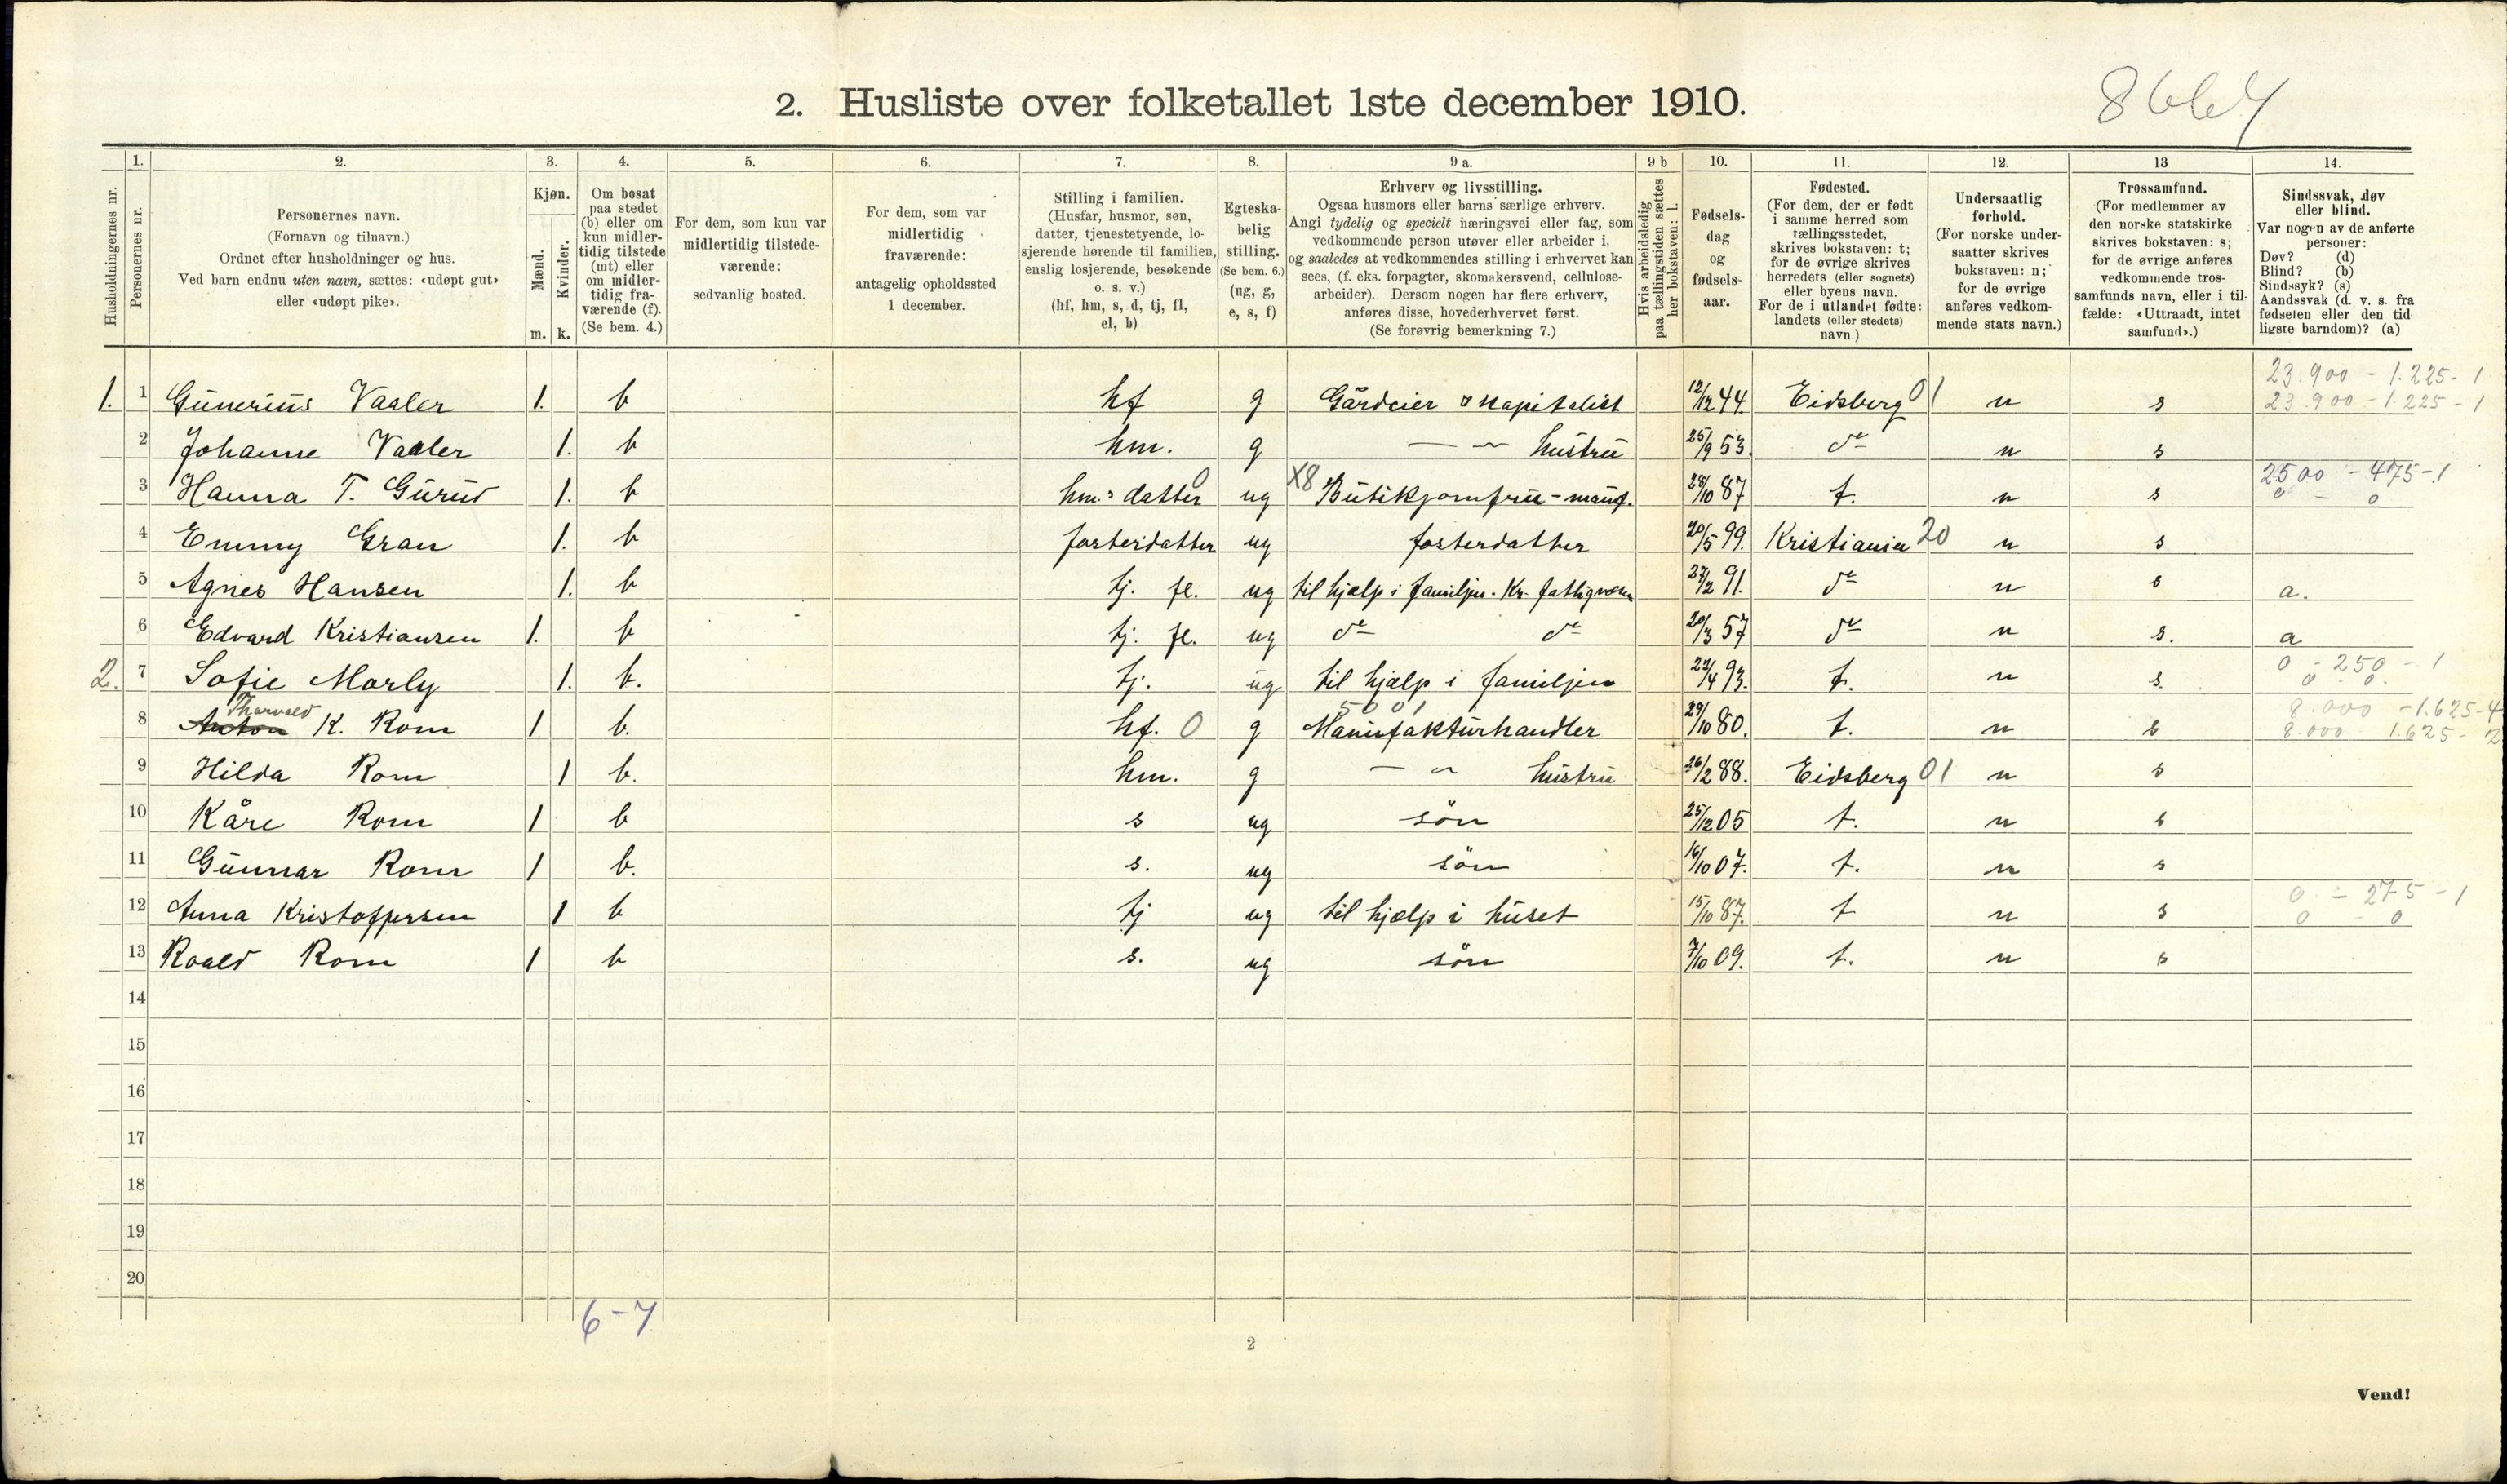 2. Husliste over folketallet 1ste december 1910.
8664
Husholdningernes nr.
1.
Personernes nr.
2.
Personernes navn.
(Fornavn og tilnavn.)
Ordnet efter husholdninger og hus.
Ved barn endnu uten navn, sættes: «udøpt gut»
eller «udøpt pike».
3.
Kjøn.
Mænd.
Kvinder.
m. k.
4.
Om bosat
paa stedet
(b) eller om
kun midler-
tidig tilstede
(mt) eller
om midler-
tidig fra-
værende (f).
(Se bem. 4.)
5.
For dem, som kun var
midlertidig tilstede-
værende:
sedvanlig bosted.
6.
For dem, som var
midlertidig
fraværende:
antagelig opholdssted
1 december.
7.
Stilling i familien.
(Husfar, husmor, søn,
datter, tjenestetyende, lo-
sjerende hørende til familien,
enslig losjerende, besøkende
o. s. v.)
(hf, hm, s, d, tj, fl,
el, b)
8.
Egteska-
belig
stilling.
(Se bem. 6.)
(ug, g,
e, s, f)
9 a.
Erhverv og livsstilling.
Ogsaa husmors eller barns særlige erhverv.
Angi tydelig og specielt næringsvei eller fag, som
vedkommende person utøver eller arbeider i,
og saaledes at vedkommendes stilling i erhvervet kan
sees, (f. eks. forpagter, skomakersvend, cellulose-
arbeider). Dersom nogen har flere erhverv,
anføres disse, hovederhvervet først.
(Se forøvrig bemerkning 7.)
9 b
Hvis arbeidsledig
paa tællingstiden sættes
her bokstaven: l.
10.
Fødsels-
dag
og
fødsels-
aar.
11.
Fødested.
(For dem, der er født
i samme herred som
tællingsstedet,
skrives bokstaven: t;
for de øvrige skrives
herredets (eller sognets)
eller byens navn.
For de i utlandet fødte:
landets (eller stedets)
navn.)
12.
Undersaatlig
forhold.
(For norske under-
saatter skrives
bokstaven: n;
for de øvrige
anføres vedkom-
mende stats navn.)
13
Trossamfund.
(For medlemmer av
den norske statskirke
skrives bokstaven: s;
for de øvrige anføres
vedkommende tros-
samfunds navn, eller i til-
fælde: «Uttraadt, intet
samfund».)
14.
Sindssvak, døv
eller blind.
Var nogen av de anførte
personer:
Døv? (d)
Blind? (b)
Sindssyk? (s)
Aandssvak (d. v. s. fra
fødselen eller den tid
ligste barndom)? (a)
23.900 - 1.225 - 1
1. 1 Gunerius Vaaler 1. b hf g Gårdeier & Kapitalist 12/12 44. Eidsberg 01 n s 23.900 - 1.225 - 1
2 Johanne Vaaler 1. b hm. g — " — hustru 25/9 53. do n s
2500 - 475 - 1
3 Hanna T. Gurud 1. b hm.s datter 0 ug X8 Butikjomfru - manuf. 28/10 87 t. n s 0 - 0
4 Emmy Gran 1. b fosterdatter ug fosterdatter 20/5 99. Kristiania 20 n s
5 Agnes Hansen 1. b tj. fl. ug til hjælp i familjen. Kr. fattigvæsen 27/2 91. do n s a.
6 Edvard Kristiansen 1. b tj. fl. ug do do 20/3 57 do n s. a
0 - 250 - 1
2. 7 Sofie Morly 1. b. tj. ug til hjælp i familjen 22/4 93. t. n s. 0 - 0.
Thorvald 5001 8.000 - 1.625 - 4
8 Anton K. Rom 1 b. hf. 0 g Manufakturhandler 29/10 80. t. n s 8.000 1.625 - 2
9 Hilda Rom 1 b. hm. g — " — hustru 26/2 88. Eidsberg 01 n s
10 Kåre Rom 1 b s ug søn 25/12 05 t. n s
11 Gunnar Rom 1 b. s. ug søn 16/10 07. t. n s
0 - 275 - 1
12 Anna Kristoffersen 1 b tj ug til hjælp i huset 15/10 87. t n s 0 - 0
13 Roald Rom 1 b s. ug søn 7/10 09. t. n s
14
15
16
17
18
19
20
6 - 7
2
Vend!